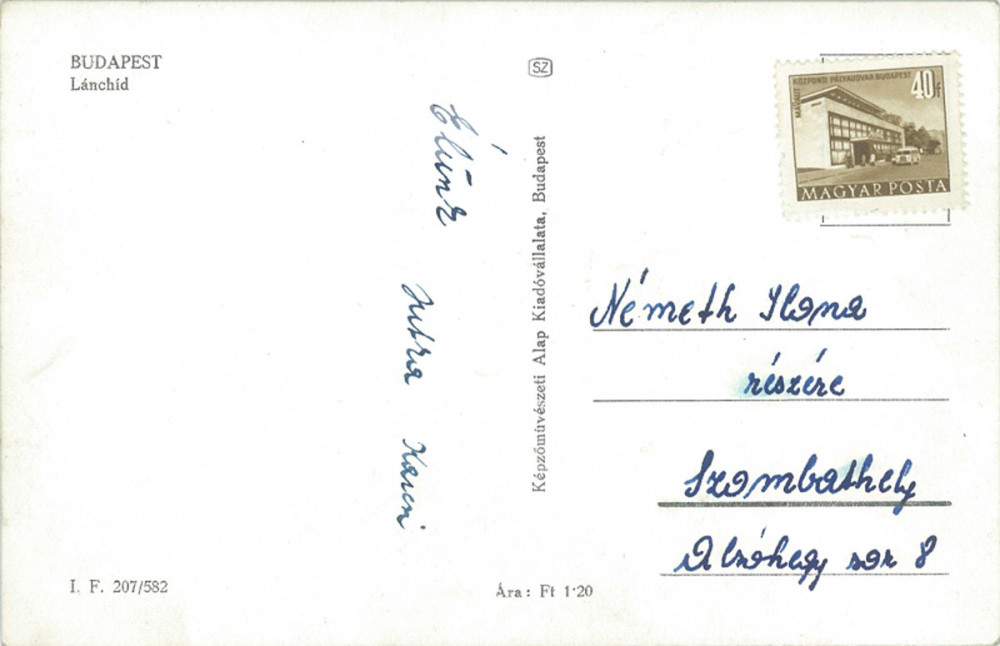 BUDAPEST
Lánchíd
SZ
MÁVAUT KÖZPONTI PÁLYAUDVAR BUDAPEST
40f
MAGYAR POSTA
Jutka Karcsi
Képzőművészeti Alap Kiadóvállalata, Budapest
Németh Ilona
részére
Szombathely
Alsóhegy sor 8
I. F. 207/582
Ára: Ft 1·20